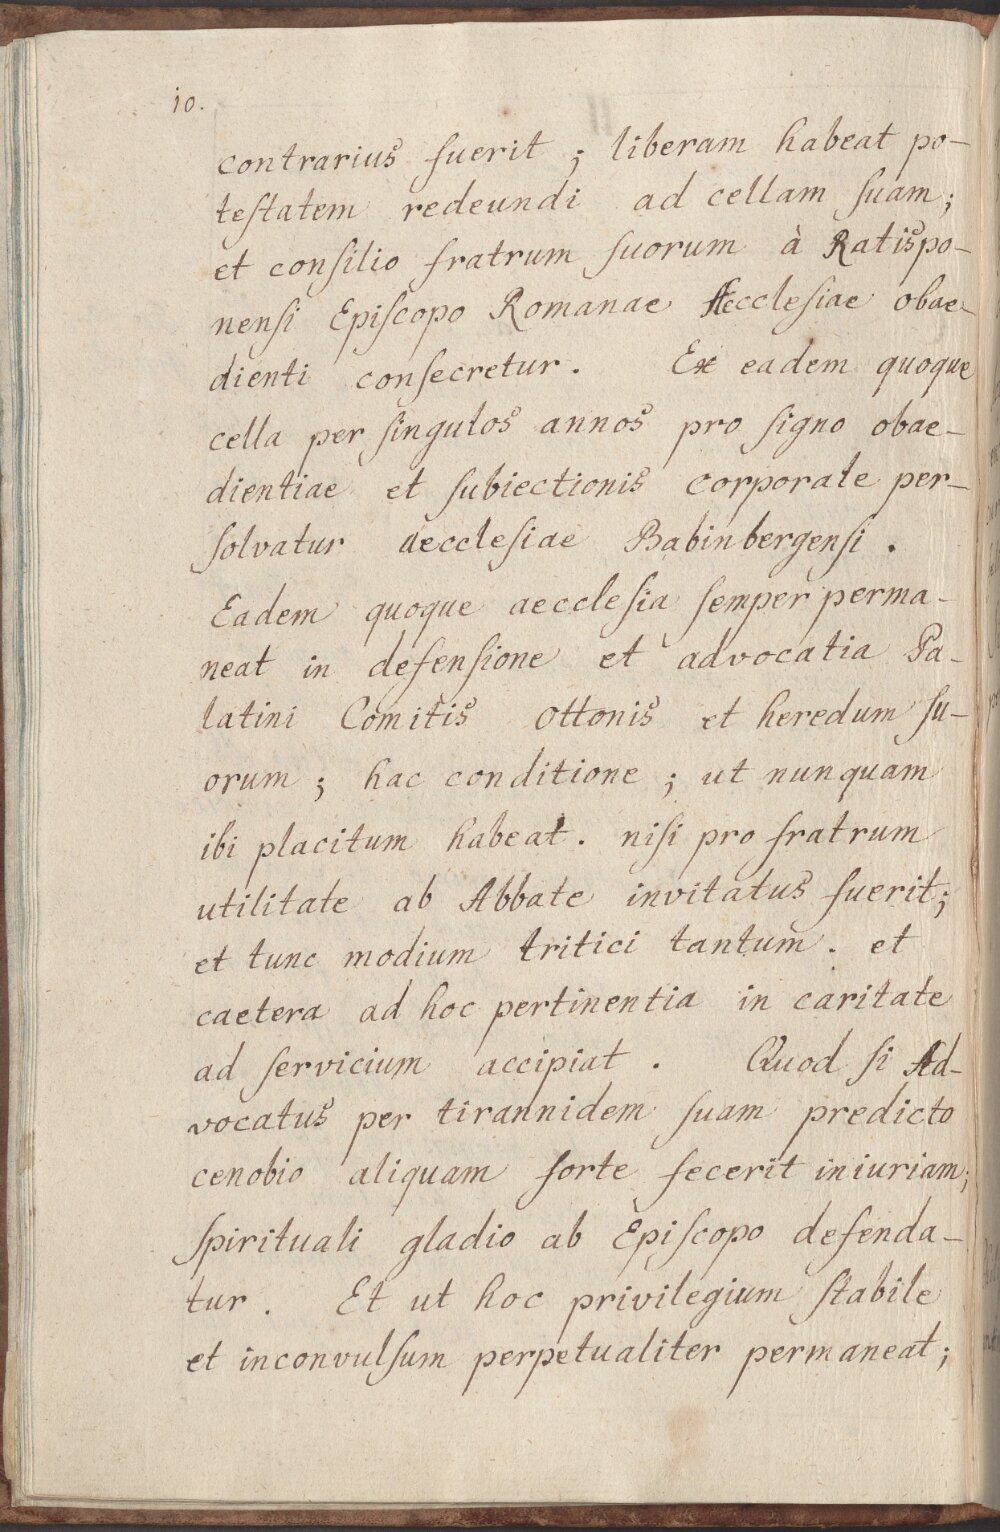 10.
contrarius fuerit ; liberam habeat po-
teſtatem redeundi ad cellam ſuam ;
et conſilio fratrum ſuorum à Ratispo-
nenſi Epiſcopo Romanae Aecclesiae obae-
dienti conſecretur . Ex eadem quoque
cella per ſingulos annos pro ſigno obae-
dientiae et ſubiectionis corporale per-
ſolvatur aeccleſiae Babinbergenſi .
Eadem quoque aeccleſia ſemper perma-
neat in defenſione et advocatia Pa-
latini Comitis Ottonis et heredum ſu-
orum ; hac conditione ; ut nunquam
ibi placitum habeat . niſi pro fratrum
utilitate ab Abbate invitatus fuerit ;
et tunc modium tritici tantum . et
caetera ad hoc pertinentia in caritate
ad ſervicium accipiat . Quod ſi Ad-
vocatus per tirannidem ſuam predicto
cenobio aliquam forte fecerit iniuriam ;
ſpirituali gladio ab Epiſcopo defenda-
tur . Et ut hoc privilegium ſtabile
et inconvulſum perpetualiter permaneat ;